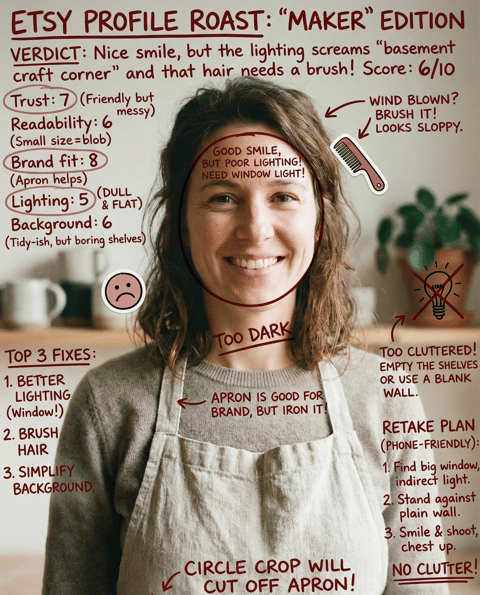 ETSY PROFILE ROAST: "MAKER" EDITION
VERDICT: Nice smile, but the lighting screams "basement
craft corner" and that hair needs a brush! Score: 6/10
Trust: 7 (Friendly but
messy)
Readability: 6
(Small size=blob)
Brand fit: 8
(Apron helps)
Lighting: 5 (DULL
& FLAT)
Background: 6
(Tidy-ish, but boring shelves)
WIND BLOWN?
BRUSH IT!
LOOKS SLOPPY.
GOOD SMILE,
BUT POOR LIGHTING!
NEED WINDOW LIGHT!
TOO DARK
TOP 3 FIXES:
1. BETTER
LIGHTING
(Window!)
2. BRUSH
HAIR
3. SIMPLIFY
BACKGROUND.
APRON IS GOOD FOR
BRAND, BUT IRON IT!
TOO CLUTTERED!
EMPTY THE SHELVES
OR USE A BLANK
WALL.
RETAKE PLAN
(PHONE-FRIENDLY):
1. Find big window,
indirect light.
2. Stand against
plain wall.
3. Smile & shoot,
chest up.
NO CLUTTER!
CIRCLE CROP WILL
CUT OFF APRON!